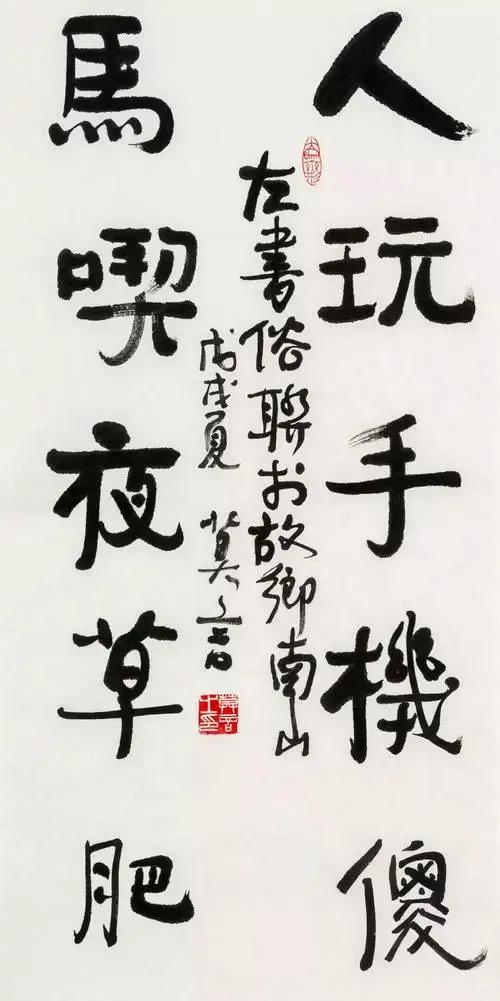 人玩手機傻
左書俗聯於故鄉南山
戊戌夏 莫言
馬喫夜草肥